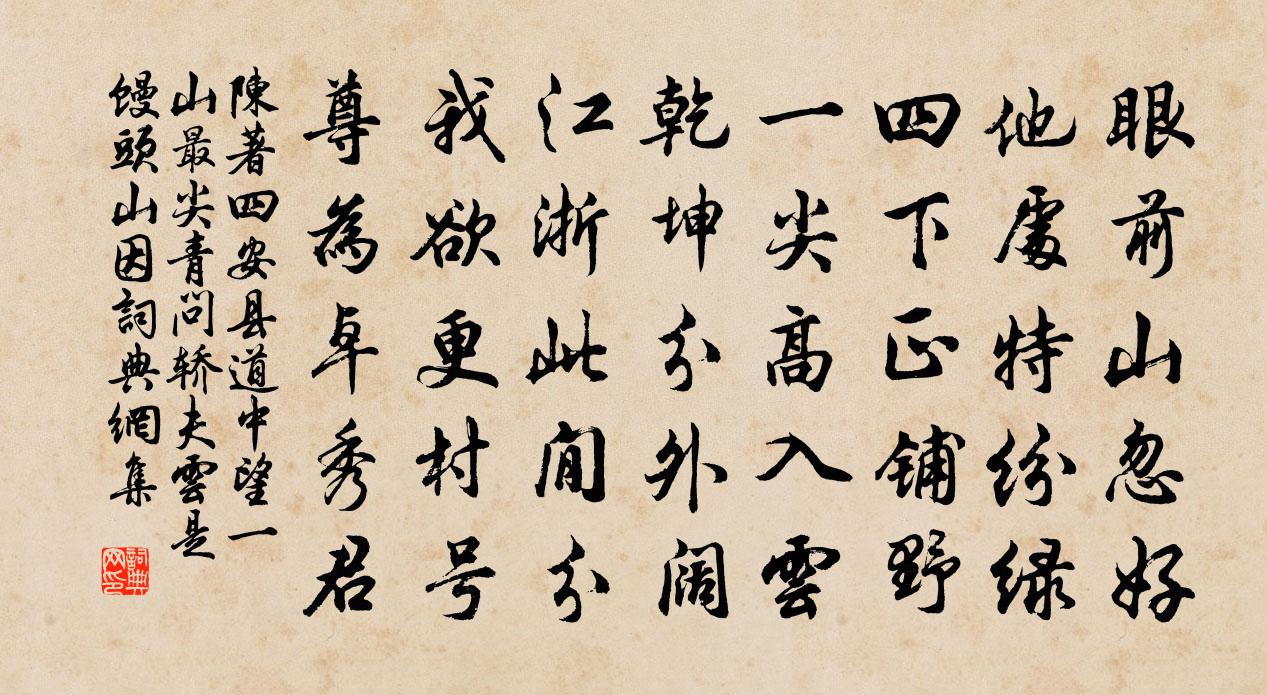 眼前山忽好
他處特紛綠
四下正铺野
一尖高入雲
乾坤分外阔
江浙此間分
我欲更村号
尊為卓秀君
陳著四安县道中望一
山最尖青問轿夫雲是
馒頭山因詞典網集
詞典
网印